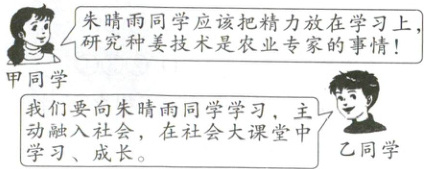 朱晴雨同学应该把精力放在学习上，
研究种姜技术是农业专家的事情！
甲同学
我们要向朱晴雨同学学习，主
动融入社会，在社会大课堂中
学习、成长。
乙同学